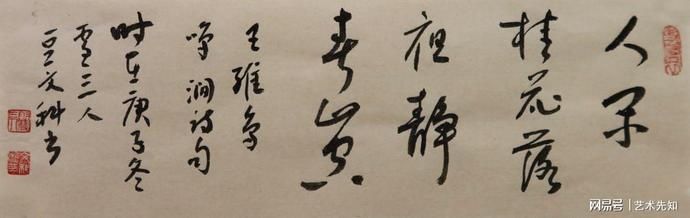 人闲
桂花落
夜静
春山空
王维鸟
鸣涧诗句
时在庚子冬
雪三人
豆文科书
网易号 | 艺术先知